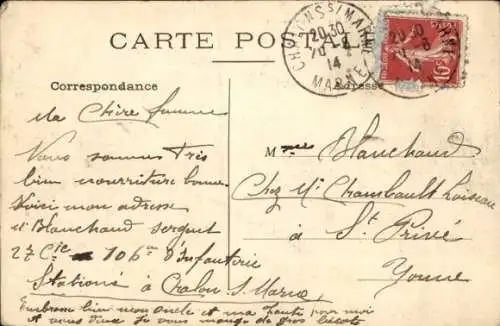 CARTE POSTALE
CHALONS S/MARNE
20 30
20 - 8
14
MARNE
10c
Correspondance
Adresse
Ma Chère femme
Vous sommes très
bien nourriture bonne
Voici mon adresse
Mr Blanchaud sergent
27 Cie 106me d'Infanterie
Stationé à Chalon s. Marne
Embrasse bien mon oncle et ma tante pour moi
et vous deux Je vous mange de gros
Mme Blanchaud
Chez Mr Chambault Loiseau
à St Privé
Yonne